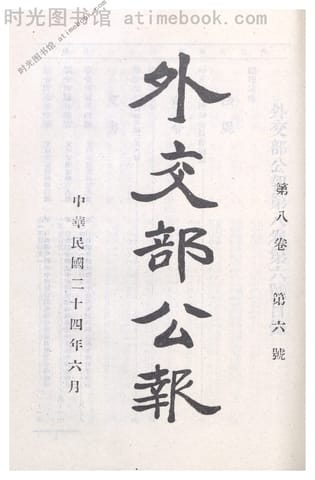 时光图书馆 www.atimebook.com
时光图书馆 atimebook.com
第八卷 第六號
外交部公報
中華民國二十四年六月